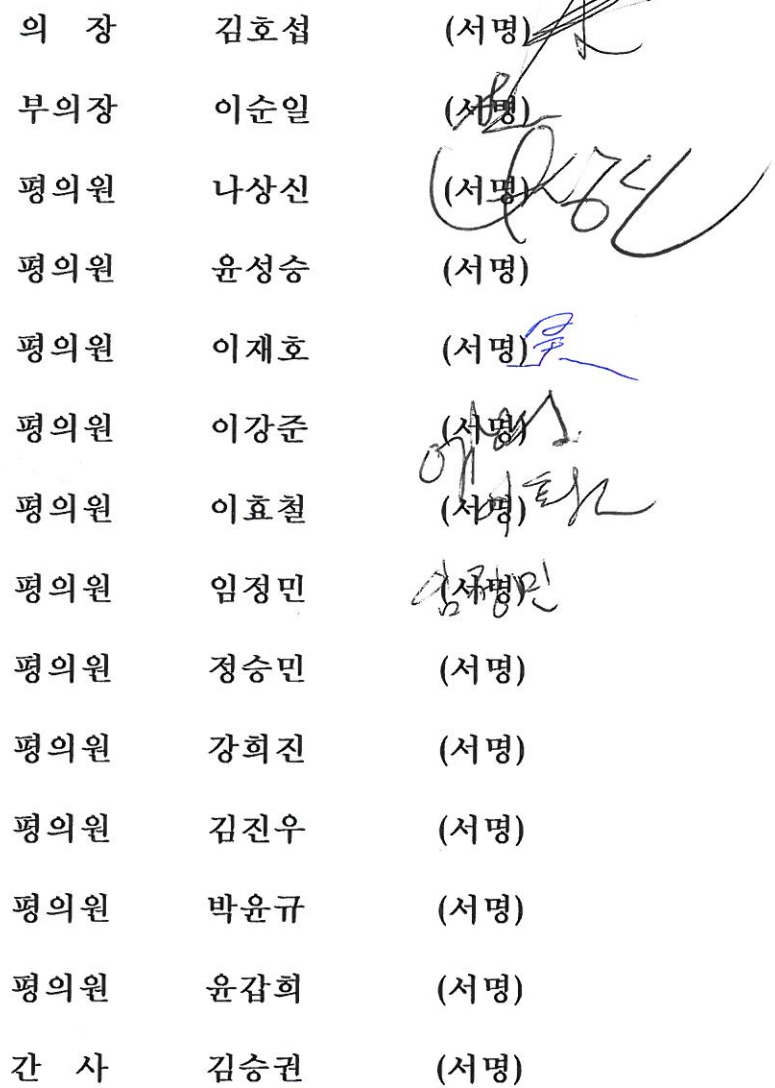 의 장 김호섭 (서명)
부의장 이순일 (서명)
평의원 나상신 (서명)
평의원 윤성승 (서명)
평의원 이재호 (서명)
평의원 이강준 (서명)
평의원 이효철 (서명)
평의원 임정민 (서명) 임정민
평의원 정승민 (서명)
평의원 강희진 (서명)
평의원 김진우 (서명)
평의원 박윤규 (서명)
평의원 윤갑희 (서명)
간 사 김승권 (서명)